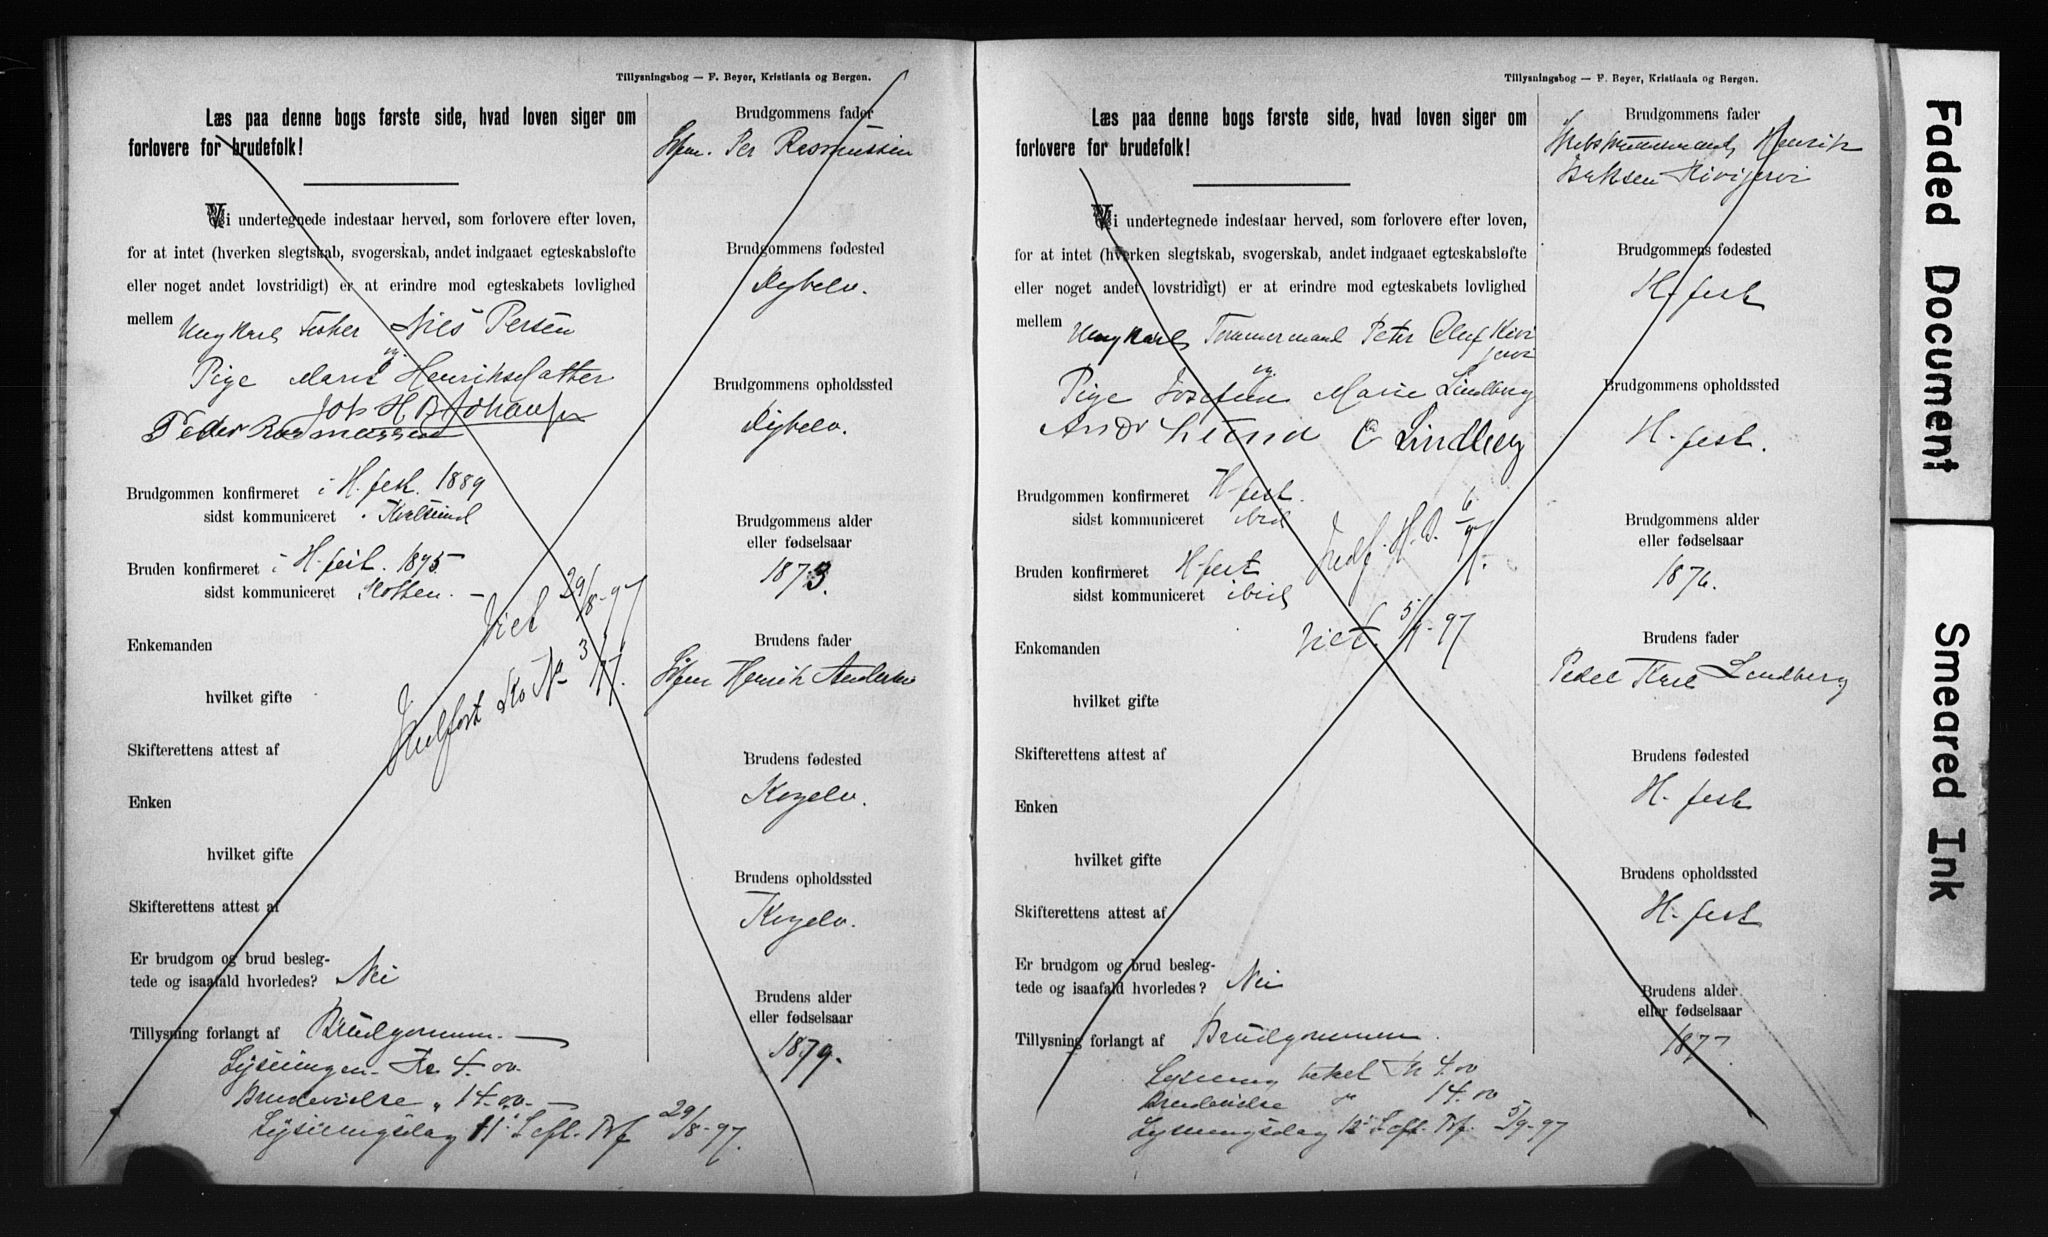 Tillysningsbog — F. Beyer, Kristiania og Bergen.
Læs paa denne bogs første side, hvad loven siger om
forlovere for brudefolk!
Vi undertegnede indestaar herved, som forlovere efter loven,
for at intet (hverken slegtskab, svogerskab, andet indgaaet egteskabsløfte
eller noget andet lovstridigt) er at erindre mod egteskabets lovlighed
mellem Ungkarl Fisker Nils Persen
og
Pige Marit Henriksdatter
Joh H B Johansen
Peder Rasmussen
Brudgommen konfirmeret i H.fest. 1889
sidst kommuniceret Kvalsund
Bruden konfirmeret i H.fest. 1895
sidst kommuniceret
Viet 29/8-97
Enkemanden
hvilket gifte
Skifterettens attest af
Enken
hvilket gifte
Skifterettens attest af
Er brudgom og brud besleg-
tede og isaafald hvorledes? Nei
Tillysning forlangt af Brudgommen
Lysningen Kr 4.00
Brudevielse " 14.00
Lysningsdag 11 S.eft. Trf 29/8-97.
Brudgommens fader
Per Rasmussen
Brudgommens fødested
Brudgommens opholdssted
Brudgommens alder
eller fødselsaar
1873.
Brudens fader
Henrik Andersen
Brudens fødested
Brudens opholdssted
Brudens alder
eller fødselsaar
1879.
Tillysningsbog — F. Beyer, Kristiania og Bergen.
Læs paa denne bogs første side, hvad loven siger om
forlovere for brudefolk!
Vi undertegnede indestaar herved, som forlovere efter loven,
for at intet (hverken slegtskab, svogerskab, andet indgaaet egteskabsløfte
eller noget andet lovstridigt) er at erindre mod egteskabets lovlighed
mellem Ungkarl Tømmermand Peter Oluf Kivi
jervi
og
Pige Josefine Marie Lindberg
Andr Lund C Lindberg
Brudgommen konfirmeret H.fest.
sidst kommuniceret ibid
Bruden konfirmeret H.fest
sidst kommuniceret ibid
Viet. 5/9-97
Enkemanden
hvilket gifte
Skifterettens attest af
Enken
hvilket gifte
Skifterettens attest af
Er brudgom og brud besleg-
tede og isaafald hvorledes? Nei
Tillysning forlangt af Brudgommen
Lysning betal Kr 4.00
Brudevielse " 14.00
Lysningsdag 12 S.eft. Trf. 5/9-97
Brudgommens fader
Henrik
Kivijervi
Brudgommens fødested
H.fest
Brudgommens opholdssted
H.fest.
Brudgommens alder
eller fødselsaar
1876.
Brudens fader
Peder Karl Lindberg
Brudens fødested
H.fest
Brudens opholdssted
H.fest
Brudens alder
eller fødselsaar
1877.
Faded Document
Smeared Ink